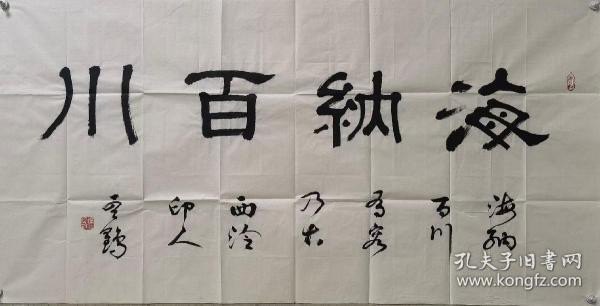 海納百川
海納
百川
有容
乃大
西泠
印人
孔夫子旧书网
www.kongfz.com